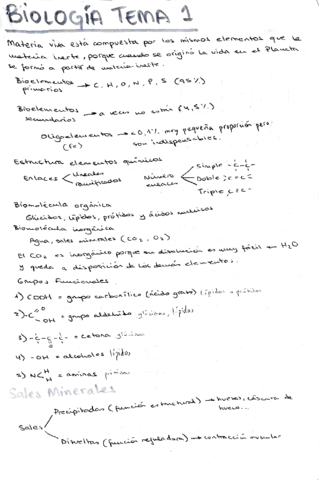 BIOLOGÍA TEMA 1
Materia viva está compuesta por los mismos elementos que la
materia inerte, porque cuando se originó la vida en el Planeta
se formó a partir de materia inerte.
Bioelementos primarios → C, H, O, N, P, S (95%)
Bioelementos secundarios → a veces no están (4,5%)
Oligoelementos → <0,1% muy pequeña proporción pero
(Fe) son indispensables.
Estructura elementos químicos
Enlaces < lineales ramificados Número enlaces
Simple -C-C-
Doble C=C
Triple C≡C-
Biomolécula orgánica
Glúcidos, lípidos, prótidos y ácidos nucleicos
Biomolécula inorgánica
Agua, sales minerales (CO2, O2)
El CO2 es inorgánico porque su disolución es muy fácil en H2O
y queda a disposición de los demás elementos.
Grupos Funcionales
1) COOH = grupo carboxílico (ácido graso) lípidos
2) -C=O OH = grupo aldehído glúcidos, lípidos
3) -C-C-C- O = cetona
4) -OH = alcoholes lípidos
5) N H H = aminas
Sales Minerales
Sales
Precipitadas (función estructural) → huesos, cáscara de
huevo...
Disueltas (función reguladora) → contracción muscular